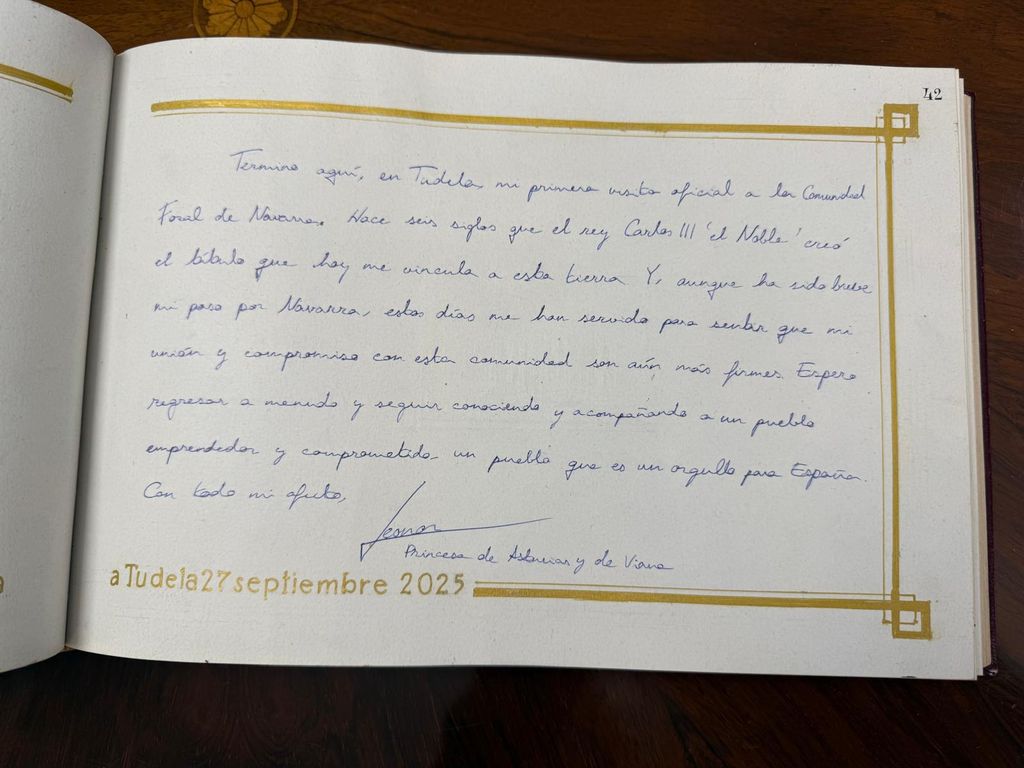 42
Termino aquí, en Tudela, mi primera visita oficial a la Comunidad
Foral de Navarra. Hace seis siglos que el rey Carlos III 'el Noble' creó
el título que hoy me vincula a esta tierra. Y, aunque ha sido breve
mi paso por Navarra, estos días me han servido para sentir que mi
unión y compromiso con esta comunidad son aún más firmes. Espero
regresar a menudo y seguir conociendo y acompañando a un pueblo
emprendedor y comprometido, un pueblo que es un orgullo para España.
Con todo mi afecto,
Leonor
Princesa de Asturias y de Viana
a Tudela 27 septiembre 2025